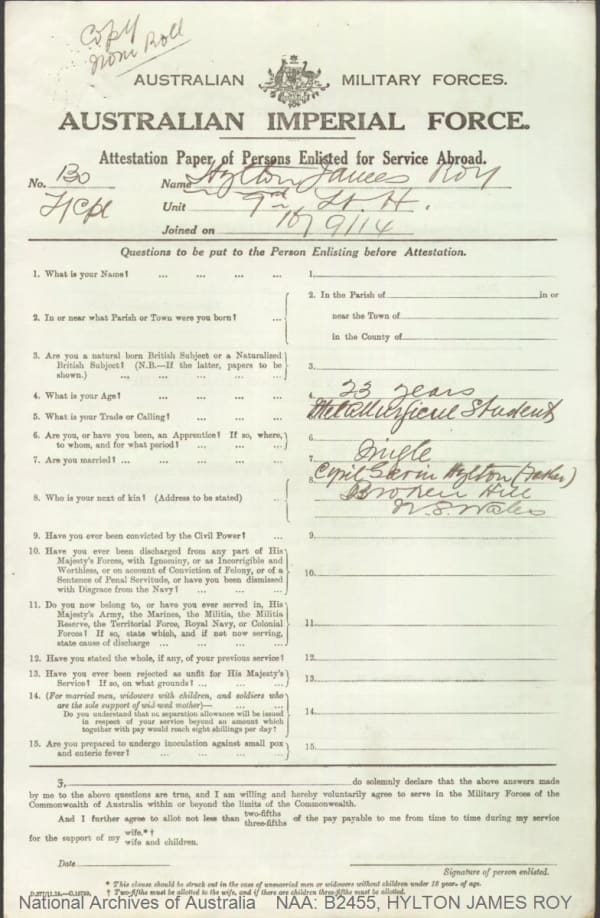 Copy
Nom Roll
AUSTRALIAN MILITARY FORCES.
AUSTRALIAN IMPERIAL FORCE.
Attestation Paper of Persons Enlisted for Service Abroad.
No. 130 Name Hylton James Roy
L/Cpl Unit 9th Lt. H.
Joined on 10/9/14
Questions to be put to the Person Enlisting before Attestation.
1. What is your Name? ... ... ... ... 1.
2. In or near what Parish or Town were you born? ... 2. In the Parish of in or
near the Town of
in the County of
3. Are you a natural born British Subject or a Naturalised
British Subject? (N.B.—If the latter, papers to be
shown.) ... ... ... ... 3.
4. What is your Age? ... ... ... ... 4. 23 years
5. What is your Trade or Calling? ... ... ... Metallurgical Student
6. Are you, or have you been, an Apprentice? If so, where,
to whom, and for what period? ... ... ... 6.
7. Are you married? ... ... ... ... 7. Single
8. Who is your next of kin? (Address to be stated) .. 8. Cyril Hylton (Father)
Broken Hill
N.S. Wales
9. Have you ever been convicted by the Civil Power? ... 9.
10. Have you ever been discharged from any part of His
Majesty's Forces, with Ignominy, or as Incorrigible and
Worthless, or on account of Conviction of Felony, or of a
Sentence of Penal Servitude, or have you been dismissed
with Disgrace from the Navy? ... ... ... 10.
11. Do you now belong to, or have you ever served in, His
Majesty's Army, the Marines, the Militia, the Militia
Reserve, the Territorial Force, Royal Navy, or Colonial
Forces? If so, state which, and if not now serving,
state cause of discharge ... ... ... ... 11.
12. Have you stated the whole, if any, of your previous service? 12.
13. Have you ever been rejected as unfit for His Majesty's
Service? If so, on what grounds? ... ... ... 13.
14. (For married men, widowers with children, and soldiers who
are the sole support of widowed mother)— ... ...
Do you understand that no separation allowance will be issued
in respect of your service beyond an amount which
together with pay would reach eight shillings per day? 14.
15. Are you prepared to undergo inoculation against small pox
and enteric fever? ... ... ... ... 15.
I, do solemnly declare that the above answers made
by me to the above questions are true, and I am willing and hereby voluntarily agree to serve in the Military Forces of the
Commonwealth of Australia within or beyond the limits of the Commonwealth.
And I further agree to allot not less than two-fifths three-fifths of the pay payable to me from time to time during my service
for the support of my wife.*† wife and children.
Date
Signature of person enlisted.
* This clause should be struck out in the case of unmarried men or widowers without children under 18 years of age.
† Two-fifths must be allotted to the wife, and if there are children three-fifths must be allotted.
National Archives of Australia NAA: B2455, HYLTON JAMES ROY